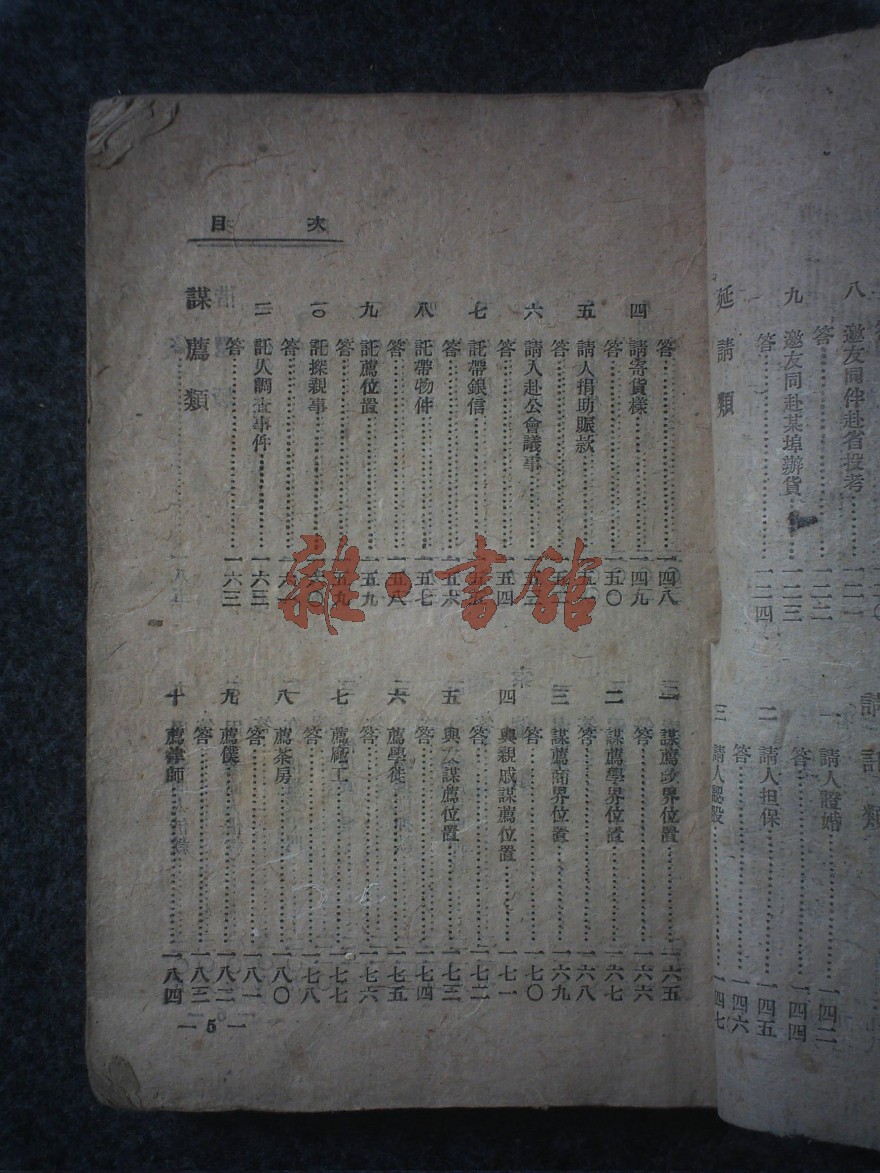 八 邀友同伴赴省投考 一二一
答 一二二
九 邀友同赴某埠辦貨 一二三
答 一二四
延請類
請託類
一 請人證婚 一四二
答 一四四
二 請人担保 一四五
答 一四六
三 請人認股 一四七
目次
答 一四八
四 請寄貨樣 一四九
答 一五〇
五 請人捐助賑款
答
六 請人赴公會議事 一五三
答 一五四
七 託帶銀信 一五五
答 一五六
八 託帶物件 一五七
答 一五八
九 託薦位置 一五九
答 一五九
一〇 託探親事 一六〇
答 一六一
一一 託人調查事件 一六三
答 一六三
謀薦類
一 謀薦政界位置 一六五
答 一六六
二 謀薦學界位置 一六七
答 一六八
三 謀薦商界位置 一六九
答 一七〇
四 與親戚謀薦位置 一七一
答 一七二
五 與友謀薦位置 一七三
答 一七四
六 薦學徒 一七五
答 一七六
七 薦廠工 一七七
答 一七八
八 薦茶房 一八〇
答 一八一
九 薦僕 一八二
答 一八三
十 薦律師 一八四
— 5 —
雜·書館